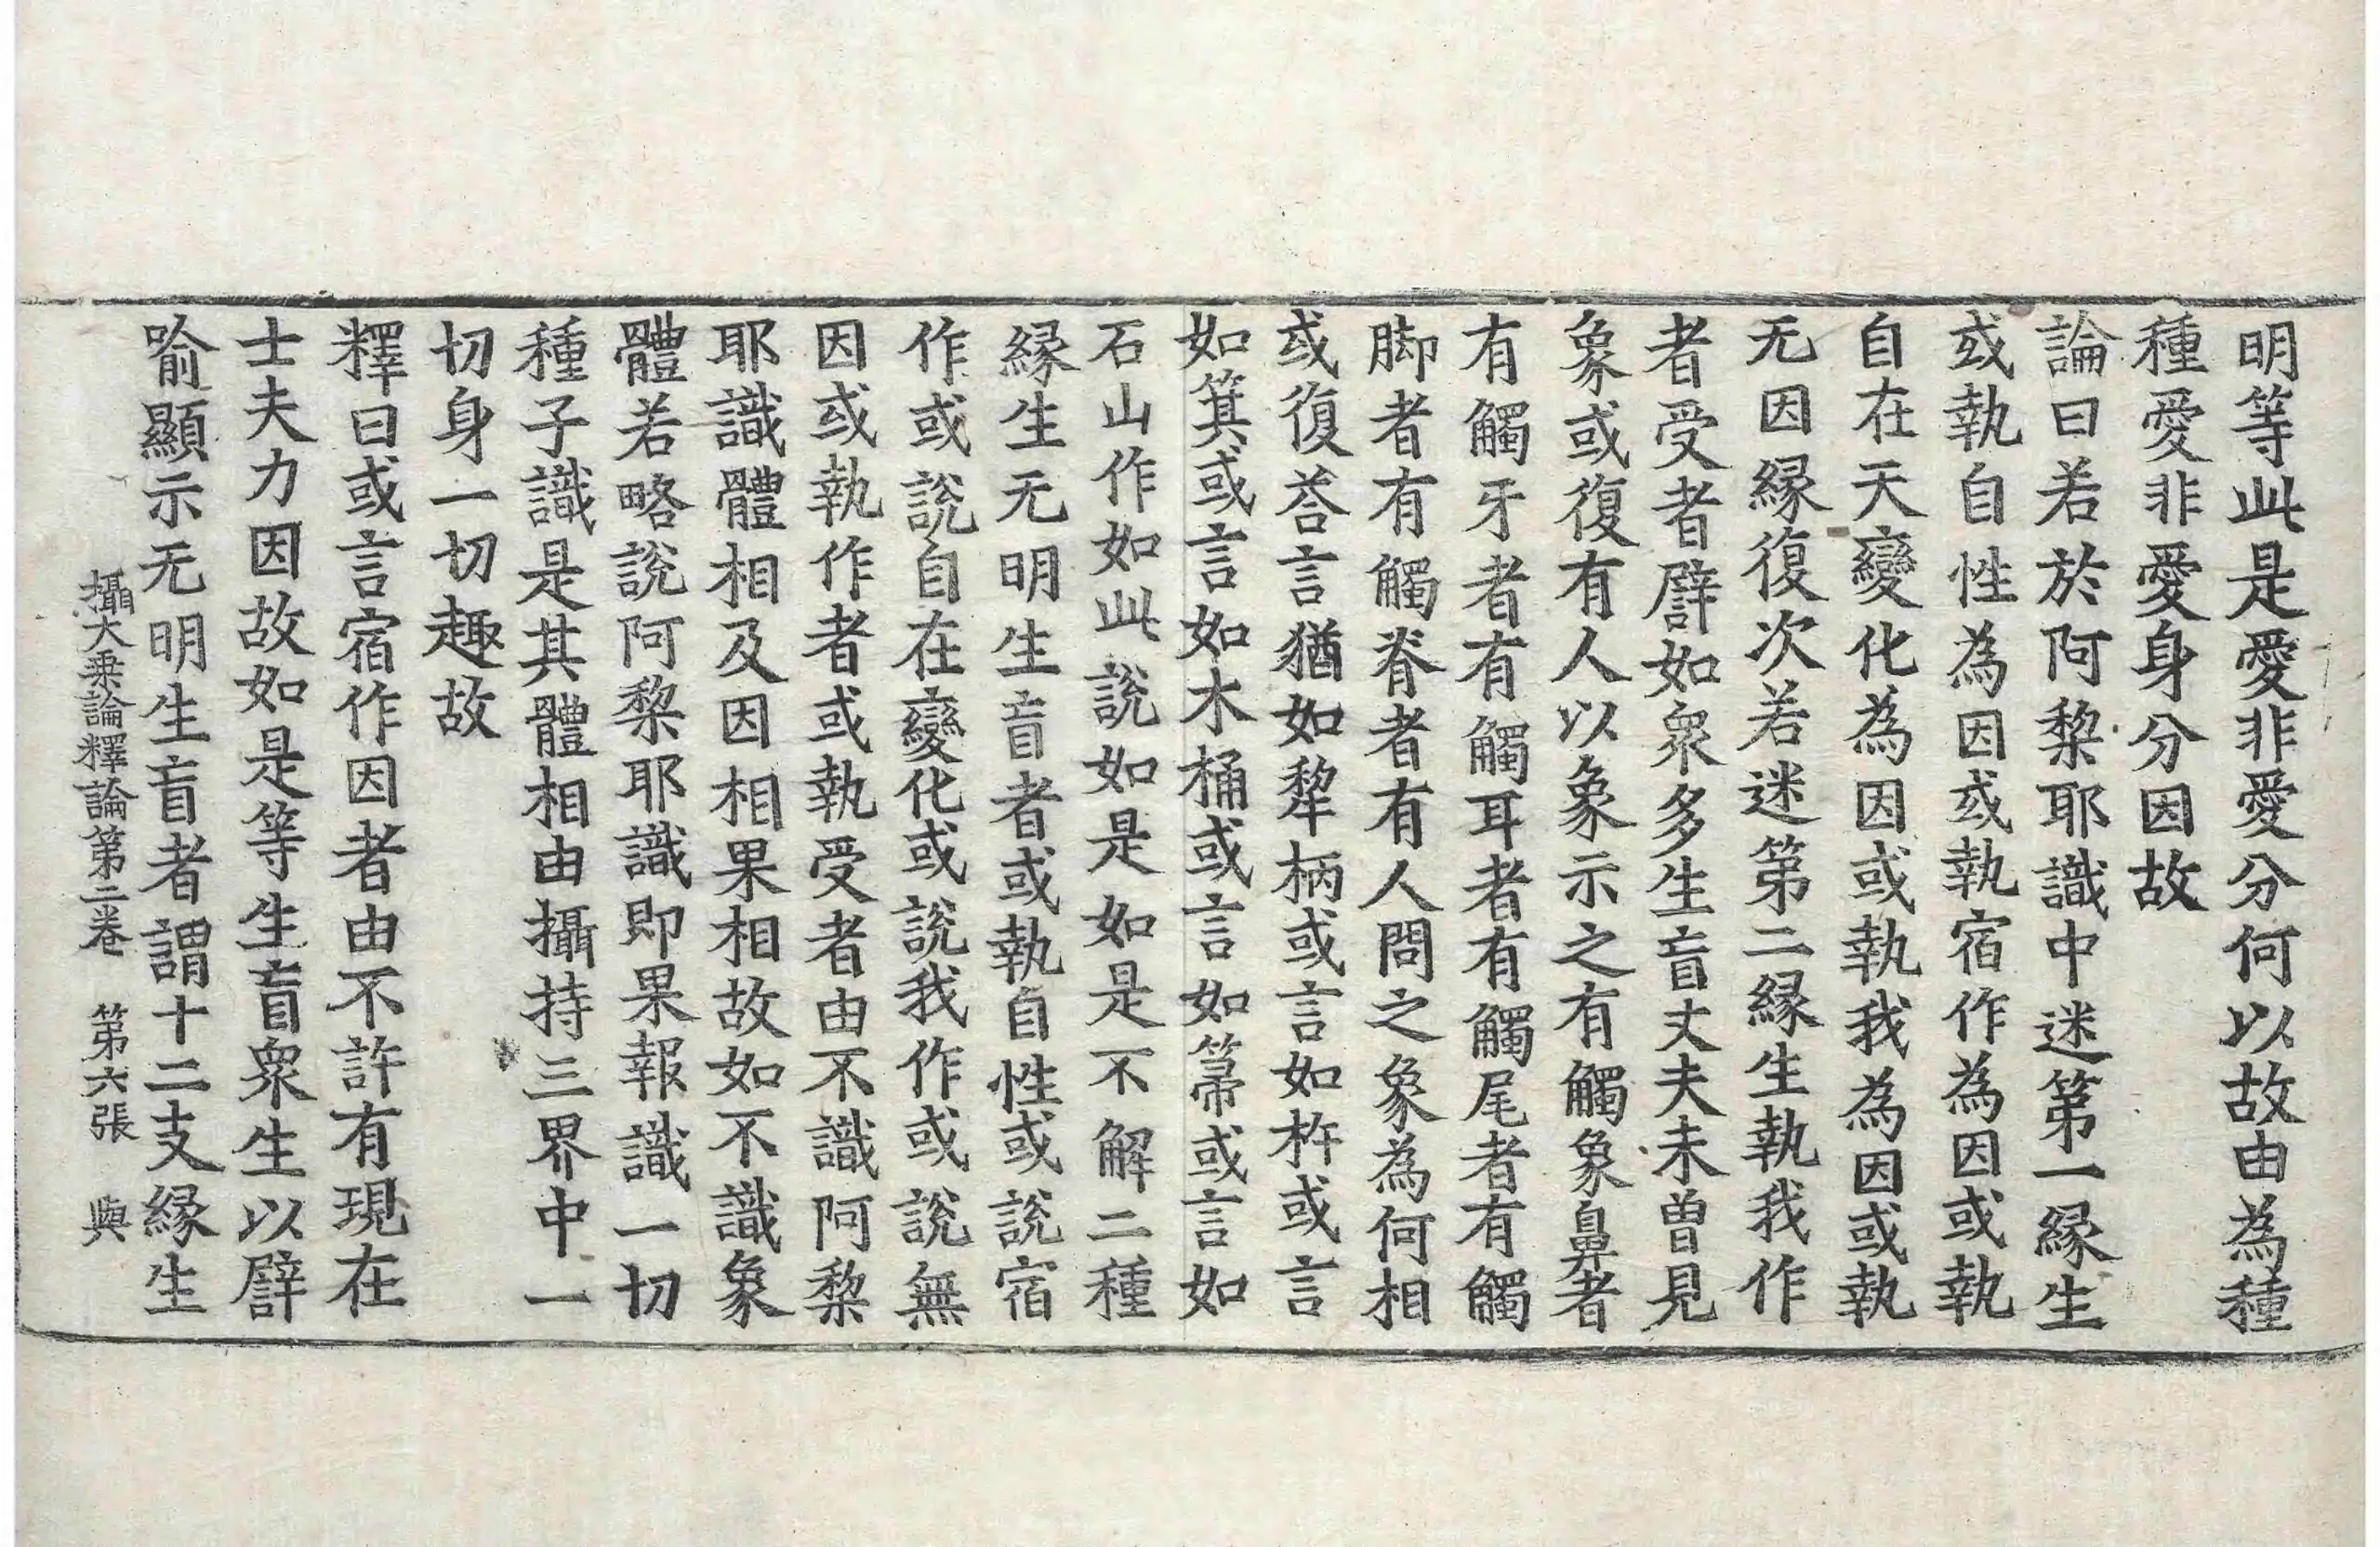 明等此是愛非愛分何以故由為種
種愛非愛身分因故
論曰若於阿棃耶識中迷第一縁生
或執自性為因或執宿作為因或執
自在天變化為因或執我為因或執
无因縁復次若迷第二縁生執我作
者受者譬如衆多生盲丈夫未曽見
象或復有人以象示之有觸象鼻者
有觸牙者有觸耳者有觸尾者有觸
脚者有觸脊者有人問之象為何相
或復荅言猶如犂柄或言如杵或言
如箕或言如木桶或言如箒或言如
石山作如此說如是如是不解二種
縁生无明生盲者或執自性或說宿
作或說自在變化或說我作或說無
因或執作者或執受者由不識阿棃
耶識體相及因相果相故如不識象
體若略說阿棃耶識即果報識一切
種子識是其體相由攝持三界中一
切身一切趣故
釋曰或言宿作因者由不許有現在
士夫力因故如是等生盲衆生以譬
喻顯示无明生盲者謂十二支縁生
攝大乗論釋論第二卷 第六張 與